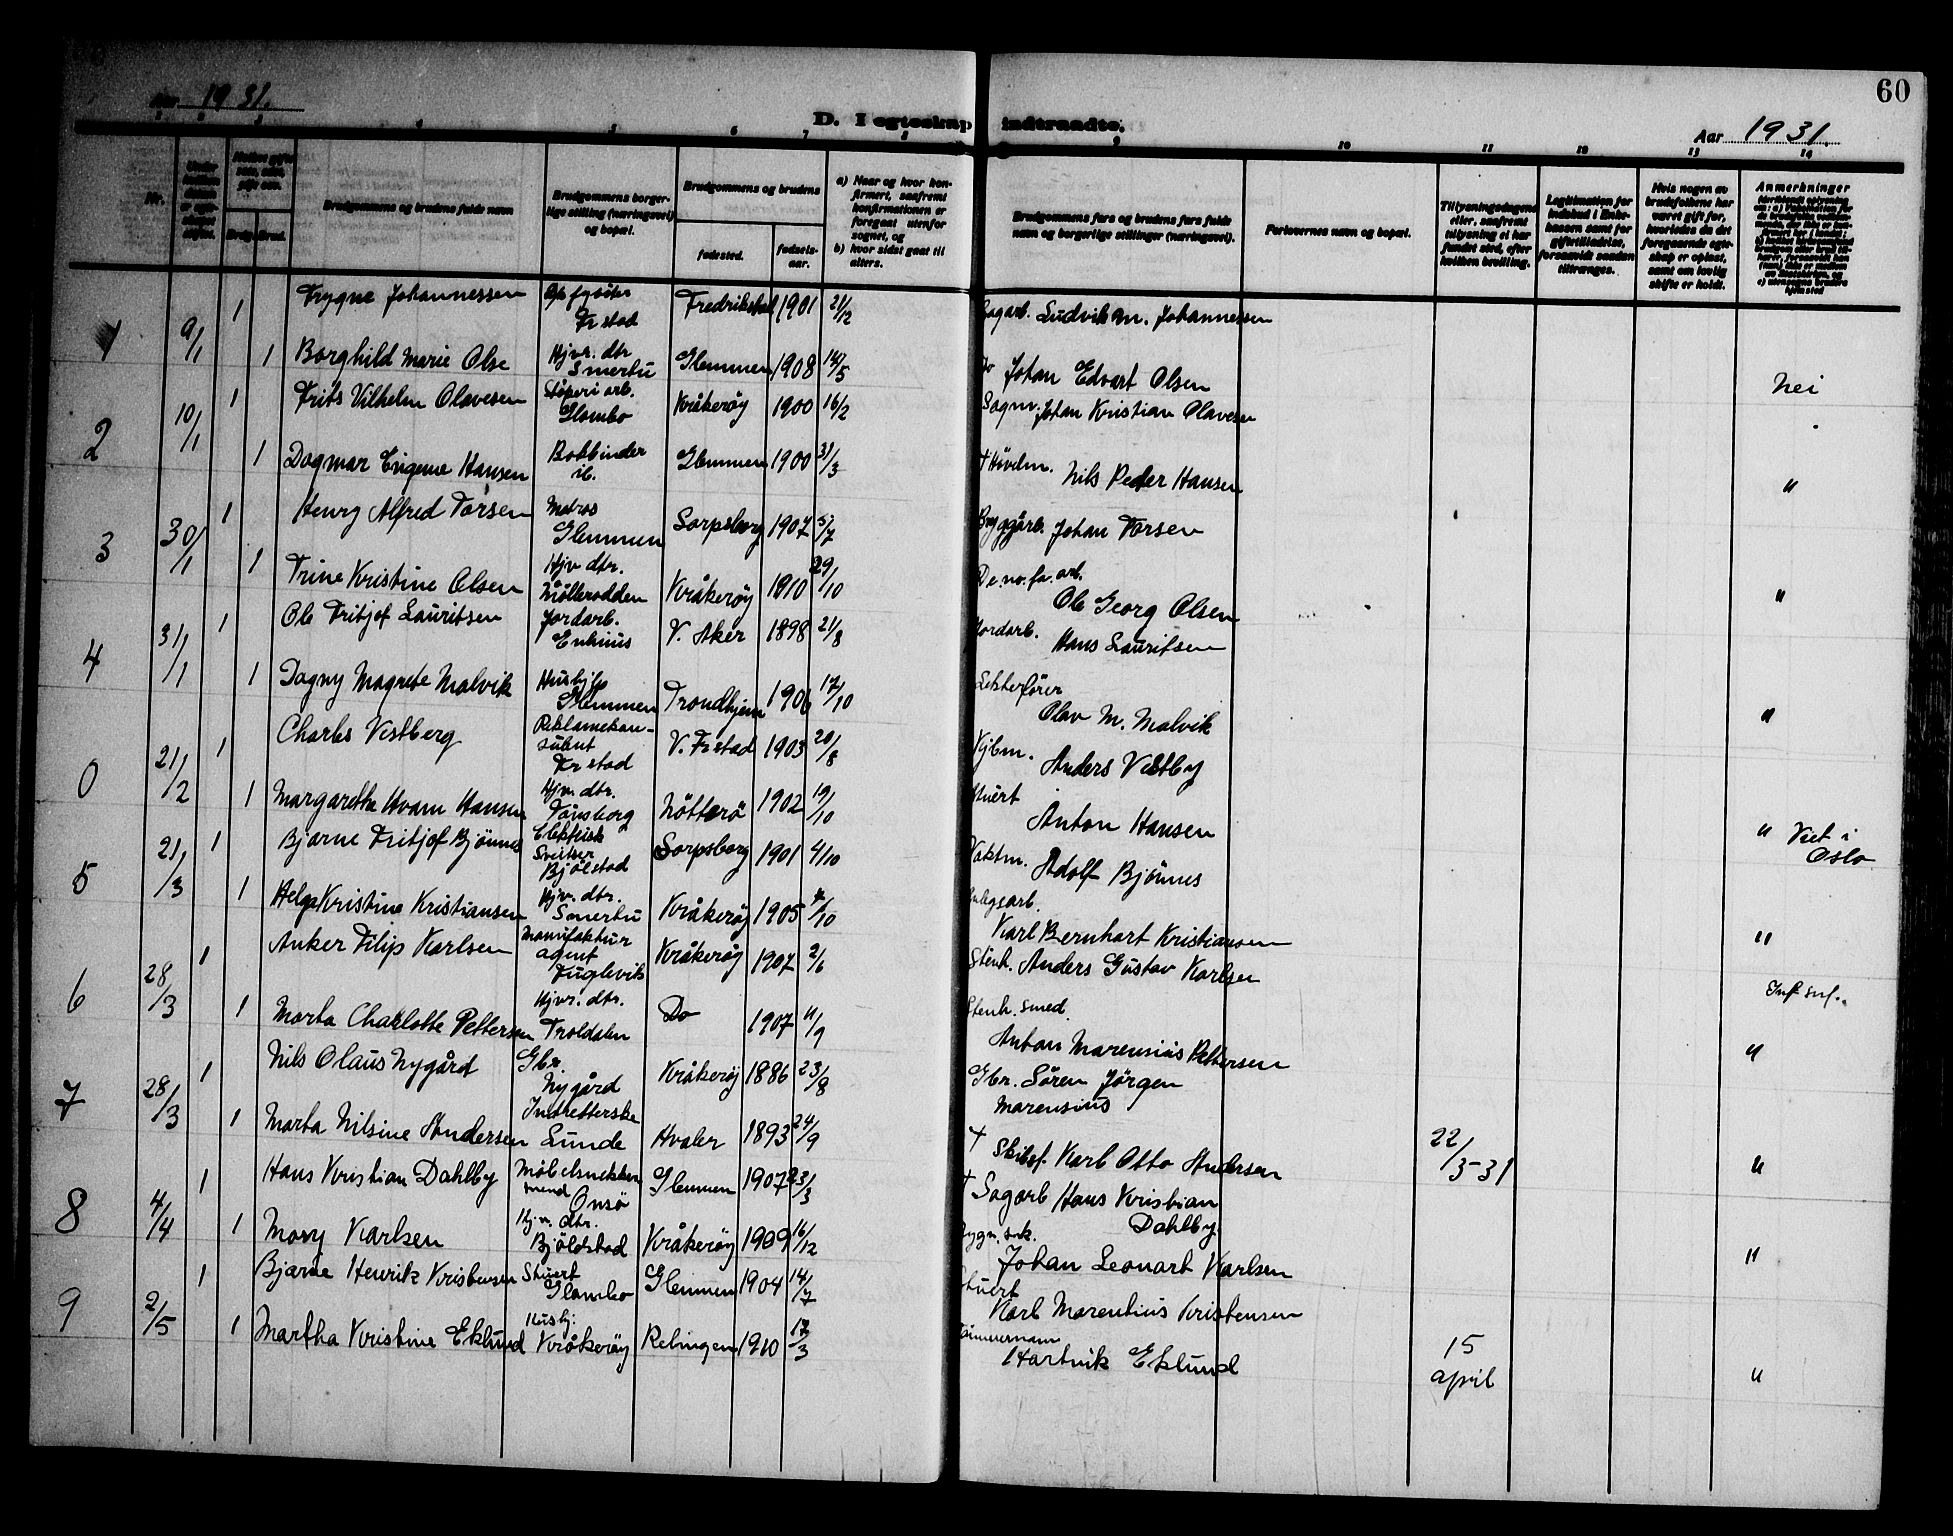 60
Aar 1931.
D. Iegteskap indtraadte.
Aar 1931.
1 2 3 4 5 6 7 8 9 10 11 12 13 14
Nr.
Brudgommens og brudens fulde navn
Brudgommens borger-
lige stilling (næringsvei)
og bopæl.
Brudgommens og brudens
fødested.
fødsels-
aar.
a) Naar og hvor kon-
firmert, saafremt
konfirmationen er
foregaat utenfor
sognet, og
b) hvor sidst gaat til
alters.
Brudgommens fars og brudens fars fulde
navn og borgerlige stillinger (næringsvei).
Forlovernes navn og bopæl.
Tillysningsdagene
eller, saafremt
tillysning ei har
fundet sted, efter
hvilken bevilling.
Hvis nogen av
brudefolkene har
været gift før,
hvorledes da det
foregaaende egte-
skap er opløst,
samt om lovlig
skifte er holdt.
Anmerkninger
1 9/1 1 Trygve Johannessen Fr stad Fredrikstad 1901 21/12 Sagarb. Ludvik M. Johannessen
1 Borghild Marie Olse Hjv. dtr. Smertu Glemmen 1908 /5 Johan Edvart Olsen nei
2 10/1 1 Frits Vilhelm Olavesen Støperi arb. Glombo Kråkerøy 1900 16/2 Sagm. Johan Kristian Olavesen
1 Dagmar Eugenie Hansen Bokbinder ib. Glemmen 1900 31/3 † Høvlm. Nils Peder Hansen "
3 30/1 1 Henry Alfred Torsen Matros Glemmen Sarpsborg 1907 5/7 Bryggarb. Johan Torsen
1 Trine Kristine Olsen Hjv dtr. Möllerodden Kråkerøy 1910 29/10 De.no.fa.arb. Ole Georg Olsen "
4 31/1 1 Ole Fritjof Lauritsen Jordarb. Enhuus V. Aker 1898 21/8 Jordarb. Hans Lauritsen
1 Dagny Magrete Malvik Glemmen Trondhjem 1906 17/10 Lekterfører Olav M. Malvik "
0 21/2 1 Charles Vestberg Reklamekon-
sulent Fr stad V. Fr stad 1903 20/8 Kjbm. Anders Vestby
1 Margarethe Hvam Hansen Hjv dtr. Tønsborg Nötterö 1902 19/10 Stuert Anton Hansen " Viet i
Oslo
5 21/3 1 Bjarne Fritjof Bjönnes Elektrisk
Sveitser
Bjölstad Sarpsborg 1901 4/10 Vaktm. Adolf Bjönnes
1 Helga Kristine Kristiansen Hjv. dtr. Smertu Kråkerøy 1905 /10 Karl Bernhart Kristiansen "
6 28/3 1 Anker Filip Karlsen Manufaktur
agent
Fuglevik Kråkerøy 1907 2/6 Stenh. Anders Gustav Karlsen
1 Marta Charlotte Pettersen Hjv. dtr. Troldalen Do 1907 11/9 Stenh. smed. Anton Marensius Pettersen "
7 28/3 1 Nils Olaus Nygård Gbr. Nygård Kråkerøy 1886 23/8 Gbr. Søren Jörgen
Marensius
1 Marta Nilsine Andersen Lunde Hvaler 1893 24/9 † Skibsf. Karl Otto Andersen 22/3-31 "
8 4/4 1 Hans Kristian Dahlby Møbelsnekker
svend Onsö Glemmen 1907 23/3 † Sagarb Hans Kristian
Dahlby
1 Mary Karlsen Hjv. dtr. Bjöldstad Kråkerøy 1909 16/12 Bygn. snk. Johan Leonart Karlsen "
9 2/5 1 Bjarne Henrik Kristensen Stuert Glombo Glemmen 1904 14/7 Stuert Karl Marentius Kristensen
1 Martha Kristine Eklund Husbj. Kråkerøy Relingen 1910 /3 Tømmermann Hartvik Eklund 15
april "